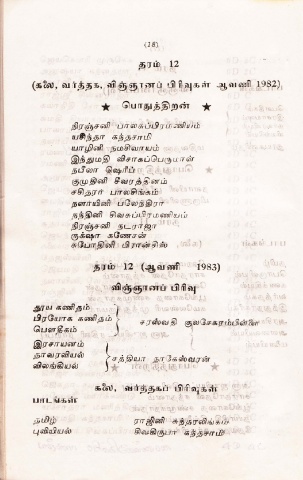 (18)
தரம் 12
(கலை, வர்த்தக, விஞ்ஞானப் பிரிவுகள் ஆவணி 1982)
★ பொதுத்திறன் ★
நிரஞ்சனி பாலசுப்பிரமணியம்
கந்தசாமி
யாழினி நமசிவாயம்
இந்துமதி விசாகப்பெருமாள்
நபீலா ஷெரீப்
குமுதினி சீவரத்தினம்
சசிதரர் பாலசிங்கம்
நளாயினி பலேந்திரா
நந்தினி சிவசுப்பிரமணியம்
நிரஞ்சனி நடராஜா
ருக்ஷா கணேசன்
சுபோதினி பிரான்சிஸ்
தரம் 12 (ஆவணி 1983)
விஞ்ஞானப் பிரிவு
தூய கணிதம்
பிரயோக கணிதம்
பௌதிகம்
சரஸ்வதி குலசேகரம்பிள்ளை
இரசாயனம்
தாவரவியல்
விலங்கியல்
சத்தியா நாகேஸ்வரன்
கலை, வர்த்தகப் பிரிவுகள்
பாடங்கள்
தமிழ் ராஜினி சுந்தரலிங்கம்
புவியியல் சிவகிருபா கந்தசாமி